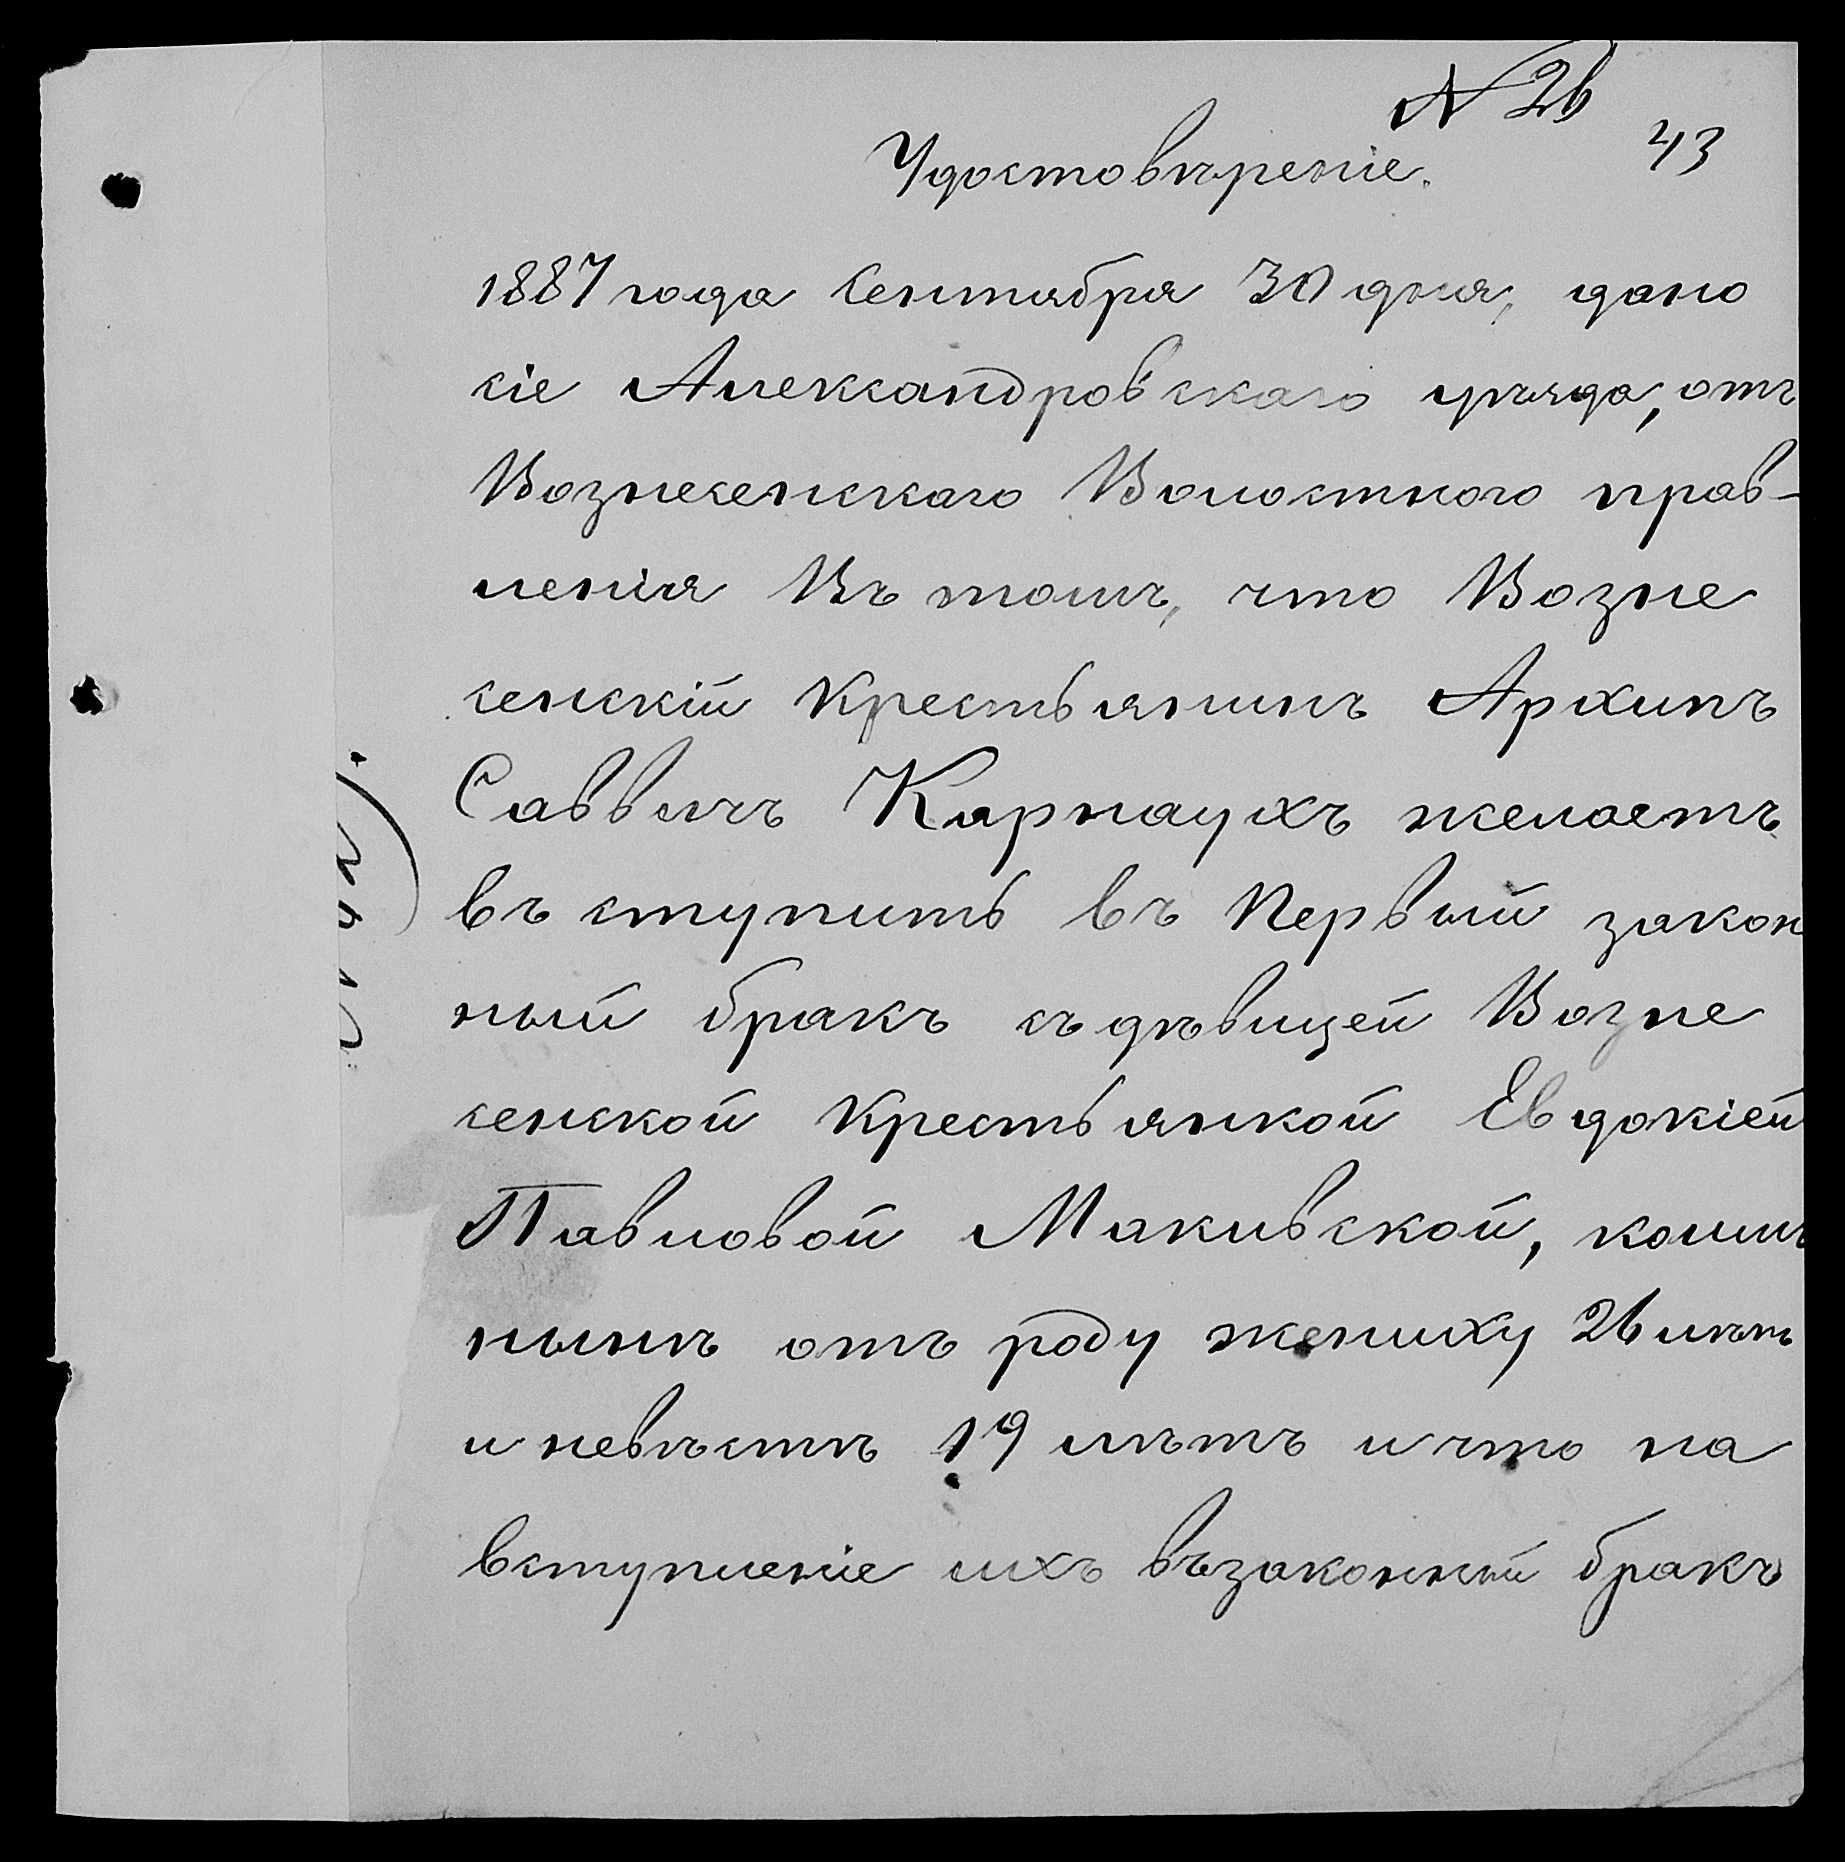 № 26
43
Удостовѣреніе.
1887 года Сентября 30 дня, дано
сіе Александровскаго уѣзда, отъ
Вознесенскаго Волостного прав-
ленія Въ томъ, что Возне
сенскій Крестьянинъ Архипъ
Саввичъ Карнаухъ желаетъ
въ ступить въ Первый закон
ный бракъ съ дѣвицей Возне
сенской Крестьянкой Евдокіей
Павловой Макивской, коимъ
нынѣ отъ роду жениху 26 лѣтъ
и невѣстѣ 19 лѣтъ и что на
вступленіе ихъ въ законный бракъ